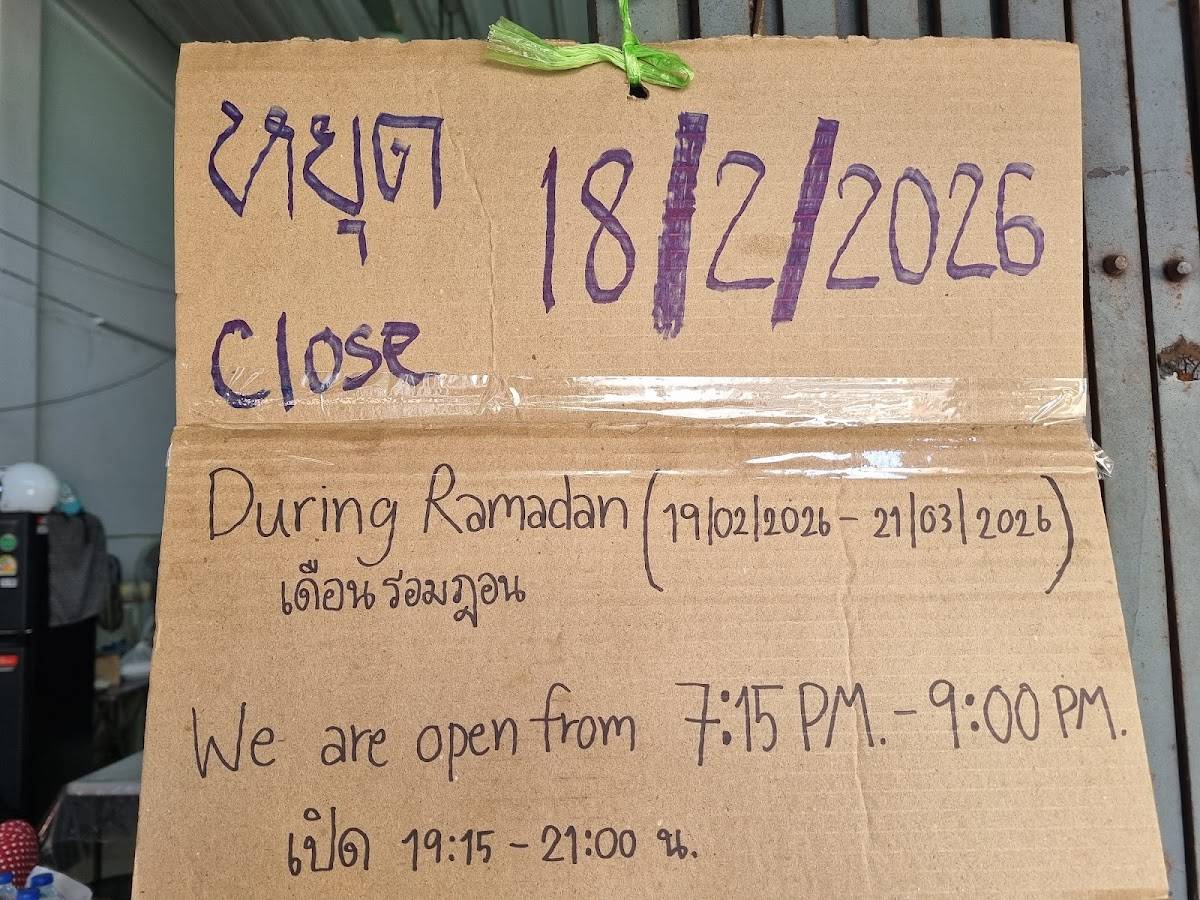 หยุด 18/2/2026
Close
During Ramadan (19/02/2026 - 21/03/2026)
เดือน รอมฎอน
We are open from 7:15 PM. - 9:00 PM.
เปิด 19:15 - 21:00 น.